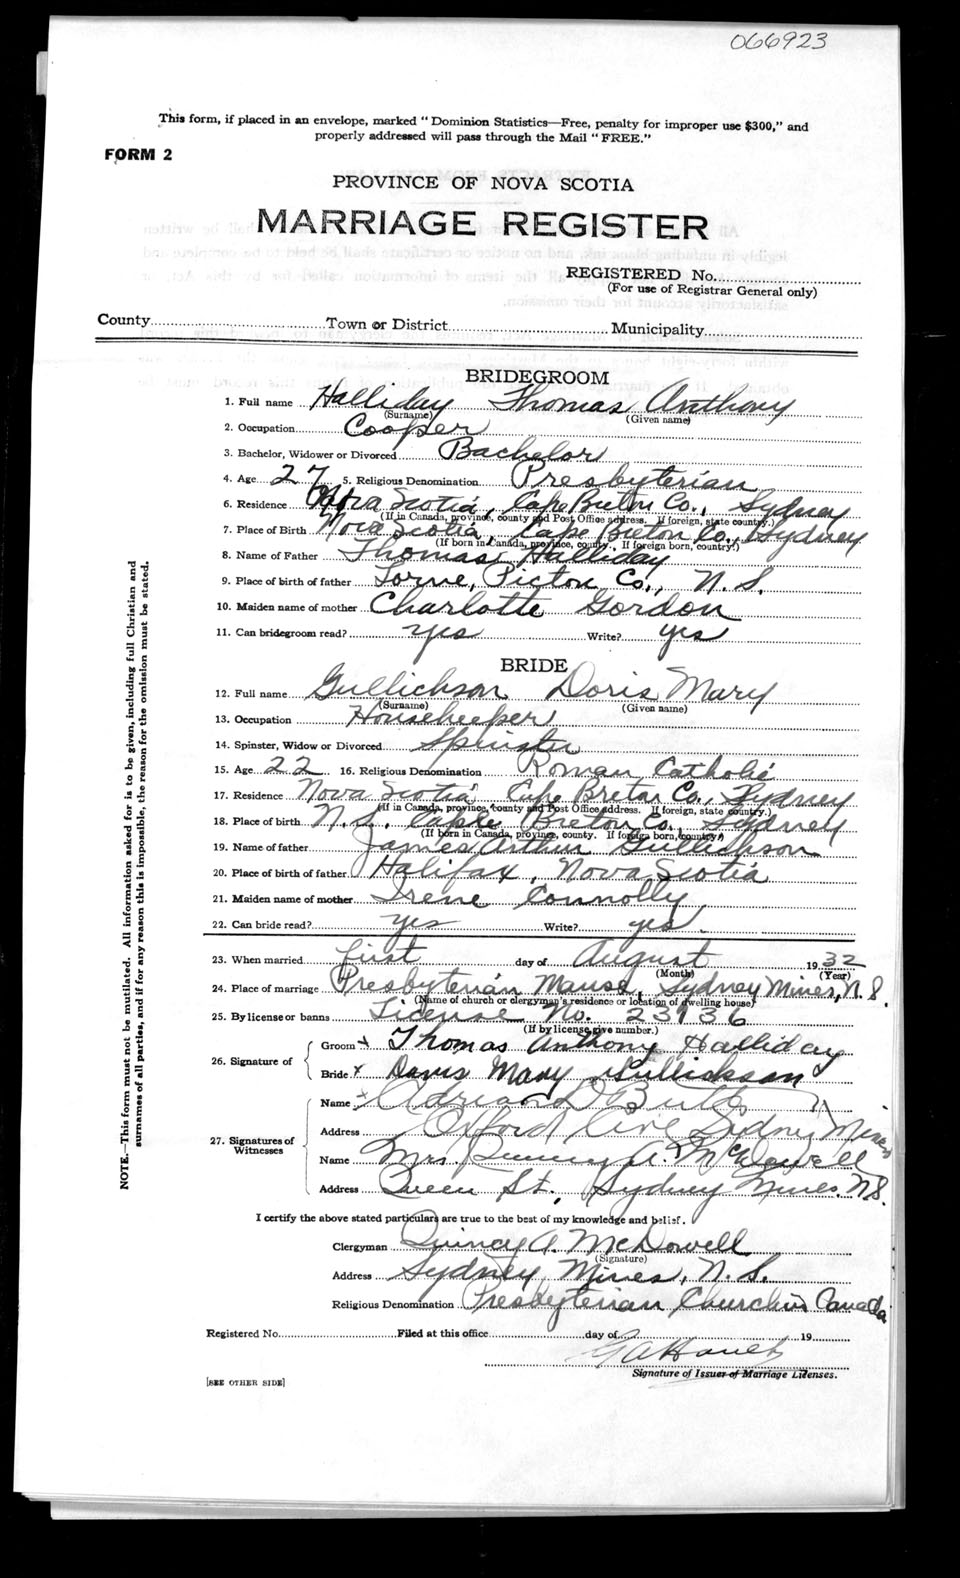 066923
This form, if placed in an envelope, marked "Dominion Statistics—Free, penalty for improper use $300," and
properly addressed will pass through the Mail "FREE."
FORM 2
PROVINCE OF NOVA SCOTIA
MARRIAGE REGISTER
REGISTERED No.
(For use of Registrar General only)
County Town or District Municipality
BRIDEGROOM
1. Full name Halliday Thomas Anthony
(Surname) (Given name)
2. Occupation Cooper
3. Bachelor, Widower or Divorced Bachelor
4. Age 27 5. Religious Denomination Presbyterian
6. Residence Nova Scotia, Cape Breton Co., Sydney
(If in Canada, province, county and Post Office address. If foreign, state country.)
7. Place of Birth Nova Scotia, Cape Breton Co., Sydney
(If born in Canada, province, county. If foreign born, country.)
8. Name of Father Thomas Halliday
9. Place of birth of father Lorne, Pictou Co., N.S.
10. Maiden name of mother Charlotte Gordon
11. Can bridegroom read? yes Write? yes
BRIDE
12. Full name Gullickson Doris Mary
(Surname) (Given name)
13. Occupation Housekeeper
14. Spinster, Widow or Divorced Spinster
15. Age 22 16. Religious Denomination Roman Catholic
17. Residence Nova Scotia Cape Breton Co., Sydney
(If in Canada, province, county and Post Office address. If foreign, state country.)
18. Place of birth N.S. Cape Breton Co., Sydney
(If born in Canada, province, county. If foreign born, country.)
19. Name of father James Arthur Gullickson
20. Place of birth of father Halifax, Nova Scotia
21. Maiden name of mother Irene Connolly
22. Can bride read? yes Write? yes.
23. When married first day of August 1932
(Month) (Year)
24. Place of marriage Presbyterian Manse, Sydney Mines, N.S.
(Name of church or clergyman's residence or location of dwelling house)
25. By license or banns License No. 23136
(If by license, give number.)
26. Signature of
Groom x Thomas Anthony Halliday
Bride x Doris Mary Gullickson
27. Signatures of Witnesses
Name Adrian D
Address Oxford Sydney Mines
Name Mrs. Quincy A. McDowell
Address Queen St., Sydney Mines. N.S.
I certify the above stated particulars are true to the best of my knowledge and belief.
Clergyman Quincy A. McDowell
(Signature)
Address Sydney Mines, N.S.
Religious Denomination Presbyterian Church in Canada
Registered No. Filed at this office day of 19
Signature of Issuer of Marriage Licenses.
[SEE OTHER SIDE]
NOTE.—This form must not be mutilated. All information asked for is to be given, including full Christian and
surnames of all parties, and if for any reason this is impossible, the reason for the omission must be stated.